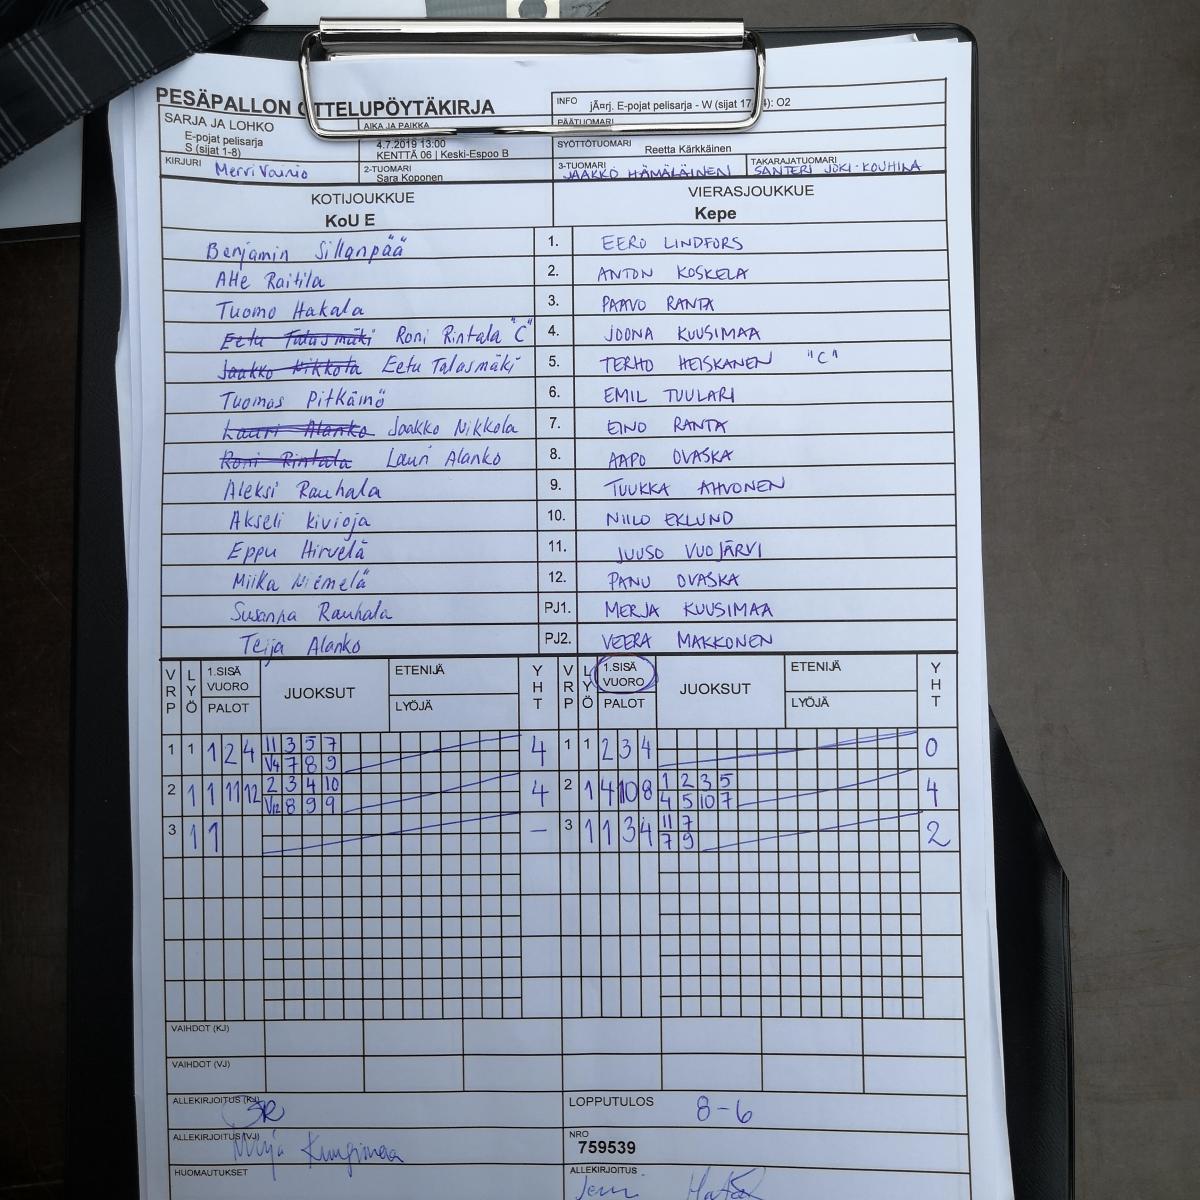 PESÄPALLON OTTELUPÖYTÄKIRJA
INFO jÃ¤rj. E-pojat pelisarja - W (sijat 17 4): O2
SARJA JA LOHKO
E-pojat pelisarja
S (sijat 1-8)
AIKA JA PAIKKA
4.7.2019 13:00
KENTTÄ 06 | Keski-Espoo B
PÄÄTUOMARI
SYÖTTÖTUOMARI Reetta Kärkkäinen
KIRJURI Mervi Vainio
2-TUOMARI Sara Koponen
3-TUOMARI JAAKKO HÄMÄLÄINEN
TAKARAJATUOMARI SANTERI JOKI-KOUHINA
KOTIJOUKKUE
KoU E
VIERASJOUKKUE
Kepe
Benjamin Sillanpää 1. EERO LINDFORS
Atte Raitila 2. ANTON KOSKELA
Tuomo Hakala 3. PAAVO RANTA
Eetu Talasmäki Roni Rintala "C" 4. JOONA KUUSIMAA
Jaakko Nikkola Eetu Talasmäki 5. TERHO HEISKANEN "C"
Tuomas Pitkämö 6. EMIL TUULARI
Lauri Alanko Jaakko Nikkola 7. EINO RANTA
Roni Rintala Lauri Alanko 8. AAPO OVASKA
Aleksi Rauhala 9. TUUKKA AHVONEN
Akseli Kivioja 10. NIILO EKLUND
Eppu Hirvelä 11. JUUSO VUOJÄRVI
Miika Niemelä 12. PANU OVASKA
Susanna Rauhala PJ1. MERJA KUUSIMAA
Teija Alanko PJ2. VEERA MAKKONEN
VRP LYÖ 1.SISÄ VUORO PALOT JUOKSUT ETENIJÄ LYÖJÄ YHT VRP LYÖ 1.SISÄ VUORO PALOT JUOKSUT ETENIJÄ LYÖJÄ YHT
1 1 1 2 4 11 3 5 7 4 1 1 2 3 4 0
V4 7 8 9
2 1 1 11 12 2 3 4 10 4 2 1 4 10 8 1 2 3 5 4
V12 8 9 9 4 5 10 7
3 1 1 – 3 1 1 3 4 11 7 2
7 9
VAIHDOT (KJ)
VAIHDOT (VJ)
ALLEKIRJOITUS (KJ) SR
LOPPUTULOS 8-6
ALLEKIRJOITUS (VJ) Merja Kuusimaa
NRO
759539
HUOMAUTUKSET
ALLEKIRJOITUS